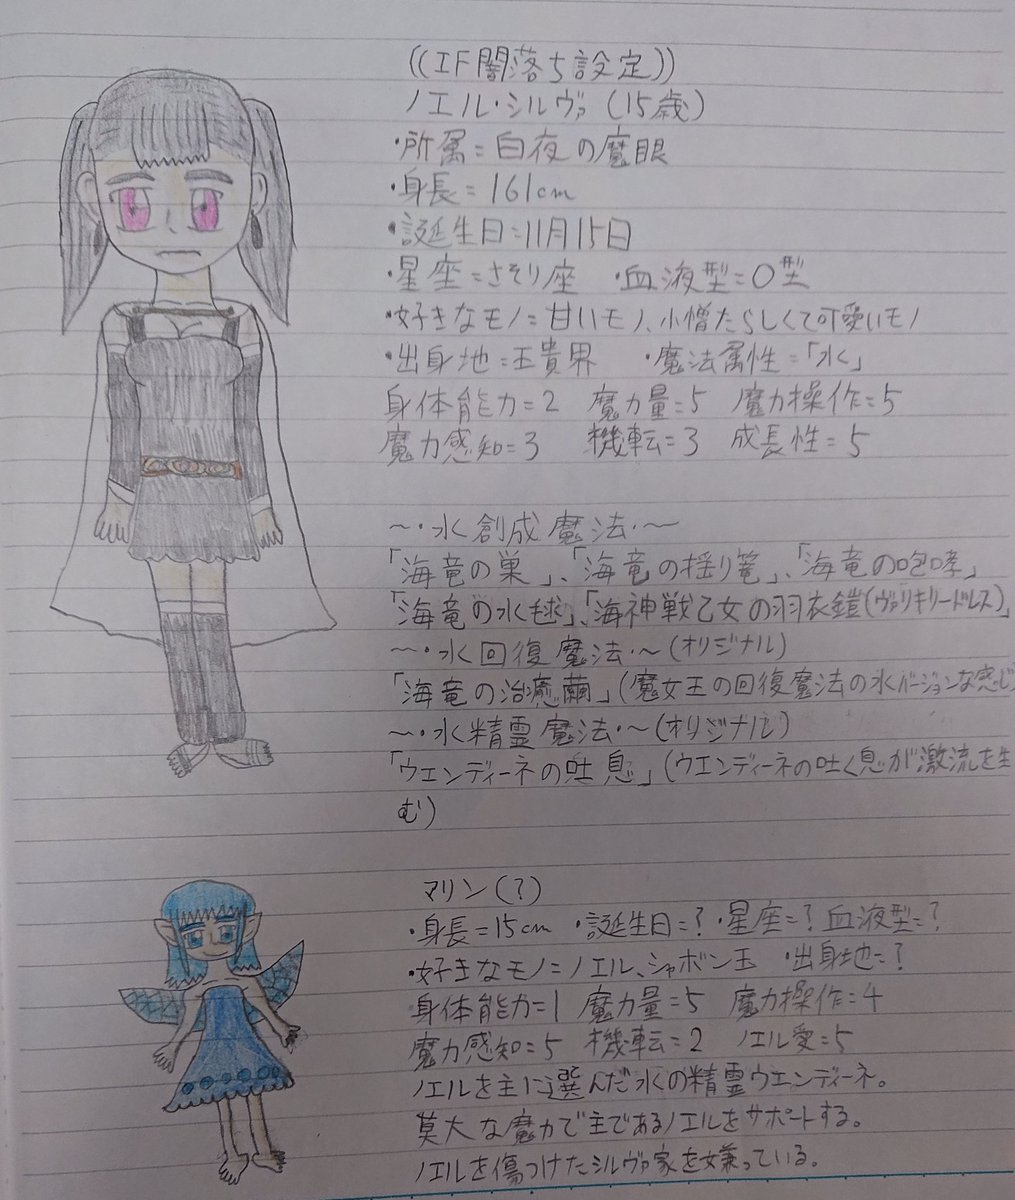 ((IF闇落ち設定))
ノエル・シルヴァ(15歳)
・所属=白夜の魔眼
・身長=161cm
・誕生日=11月15日
・星座=さそり座 ・血液型=O型
・好きなモノ=甘いモノ、小憎たらしくて可愛いモノ
・出身地=王貴界 ・魔法属性=「水」
身体能力=2 魔力量=5 魔力操作=5
魔力感知=3 機転=3 成長性=5
～・水創成魔法・～
「海竜の巣」、「海竜の揺り篭」、「海竜の咆哮」
「海竜の水毬」、「海神戦乙女の羽衣鎧(ヴァリキリードレス)」
～・水回復魔法・～(オリジナル)
「海竜の治癒繭」(魔女王の回復魔法の水バージョンな感じ)
～・水精霊魔法・～(オリジナル)
「ウエンディーネの吐息」(ウエンディーネの吐く息が激流を生
む)
マリン(?)
・身長=15cm ・誕生日=? ・星座=? 血液型=?
・好きなモノ=ノエル、シャボン玉 ・出身地=?
身体能力=1 魔力量=5 魔力操作=4
魔力感知=5 機転=2 ノエル愛=5
ノエルを主に選んだ水の精霊ウエンディーネ。
莫大な魔力で主であるノエルをサポートする。
ノエルを傷つけたシルヴァ家を嫌っている。